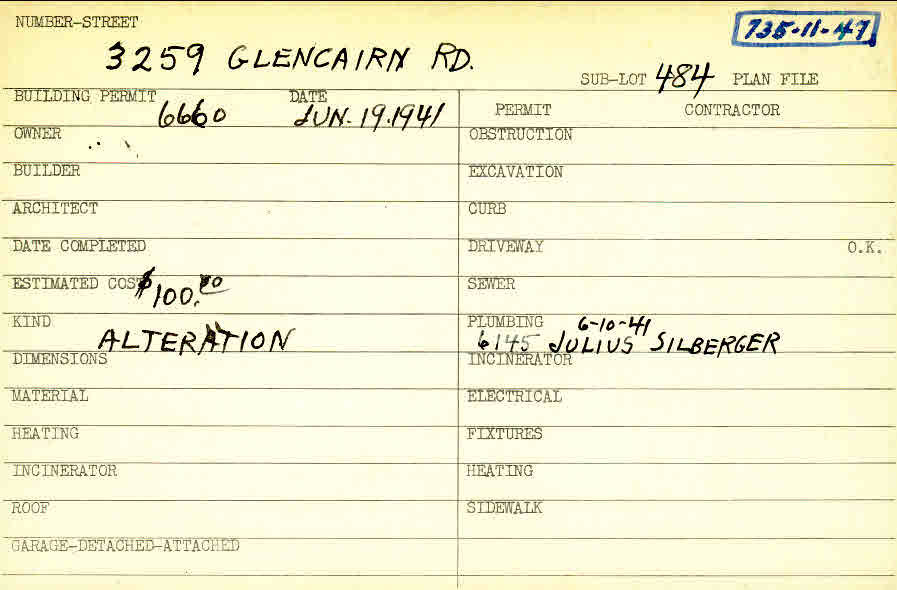 NUMBER-STREET
735-11-47
3259 GLENCAIRN RD.
SUB-LOT 484 PLAN FILE
BUILDING PERMIT 6660 DATE JUN. 19.1941
PERMIT CONTRACTOR
OWNER
OBSTRUCTION
BUILDER
EXCAVATION
ARCHITECT
CURB
DATE COMPLETED
DRIVEWAY O.K.
ESTIMATED COST $100.00
SEWER
KIND ALTERATION
PLUMBING 6-10-41
6145 JULIUS SILBERGER
DIMENSIONS
INCINERATOR
MATERIAL
ELECTRICAL
HEATING
FIXTURES
INCINERATOR
HEATING
ROOF
SIDEWALK
GARAGE-DETACHED-ATTACHED